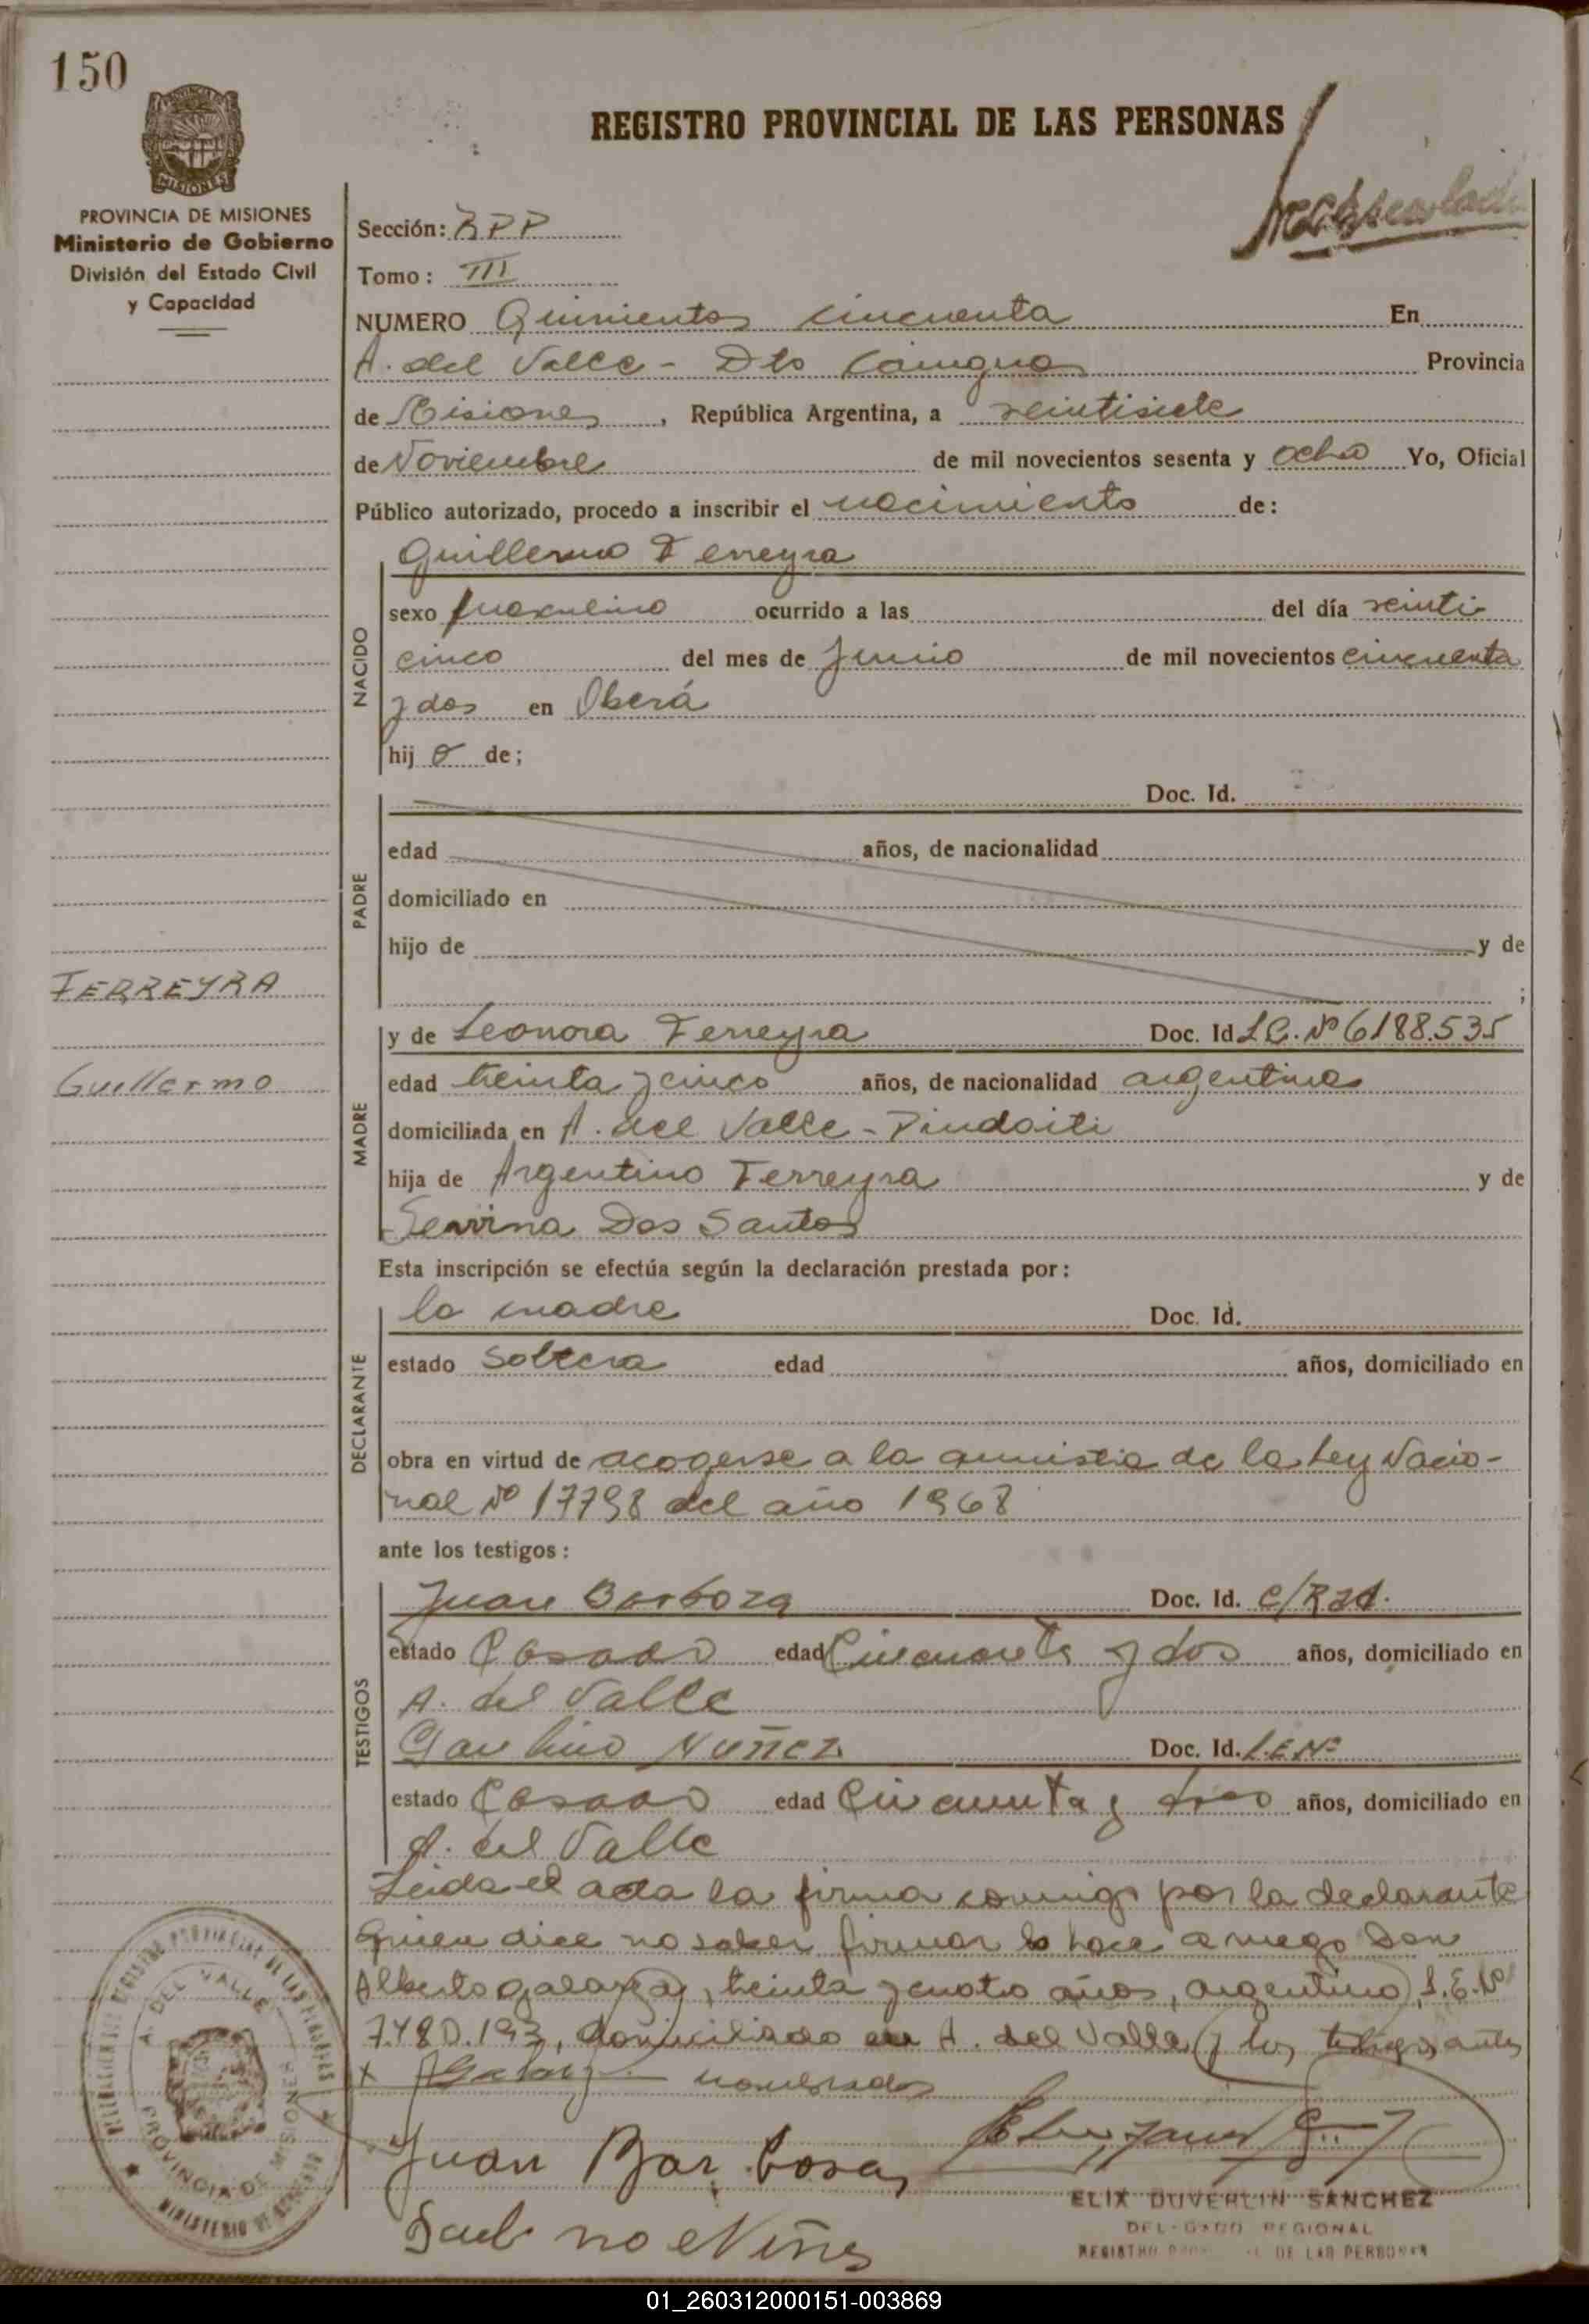 150
REGISTRO PROVINCIAL DE LAS PERSONAS
MISIONES
PROVINCIA DE MISIONES
Ministerio de Gobierno
División del Estado Civil
y Capacidad
Sección:
Tomo: III
NUMERO Quinientos cincuenta En
A. del Valle - Dto Cainguas Provincia
de Misiones, República Argentina, a veintisiete
de Noviembre de mil novecientos sesenta y ocho Yo, Oficial
Público autorizado, procedo a inscribir el nacimiento de:
NACIDO
Guillermo Ferreyra
sexo masculino ocurrido a las del día veinti
cinco del mes de Junio de mil novecientos cincuenta
y dos en Oberá
hij o de;
PADRE
Doc. Id.
edad años, de nacionalidad
domiciliado en
hijo de y de
;
FERREYRA
Guillermo
MADRE
y de Leonora Ferreyra Doc. Id L.C. Nº 6188.535
edad treinta y cinco años, de nacionalidad argentina
domiciliada en A. del Valle - Pindaiti
hija de Argentino Ferreyra y de
Dos Santos
Esta inscripción se efectúa según la declaración prestada por:
DECLARANTE
la madre Doc. Id.
estado Soltera edad años, domiciliado en
obra en virtud de acogerse a la amnistia de la Ley Nacio-
nal Nº 17798 del año 1968
ante los testigos:
TESTIGOS
Juan Barboza Doc. Id.
estado Casado edad Cincuenta y dos años, domiciliado en
A. del Valle
Nuñez Doc. Id. L.E Nº
estado Casado edad Cincuenta y años, domiciliado en
A. del Valle
Leida el acta la firma conmigo por la declarante
quien dice no saber firmar lo hace a ruego Don
Alberto , treinta y cuatro años, argentino, L.E. Nº
7.480.193, domiciliado en A. del Valle y los testigos antes
x nombrados
Juan Bar bosa
ELIX DUVERLIN SANCHEZ
DELEGADO REGIONAL
REGISTRO DE LAS PERSONAS
A. DEL VALLE
PROVINCIA DE MISIONES
01_260312000151-003869